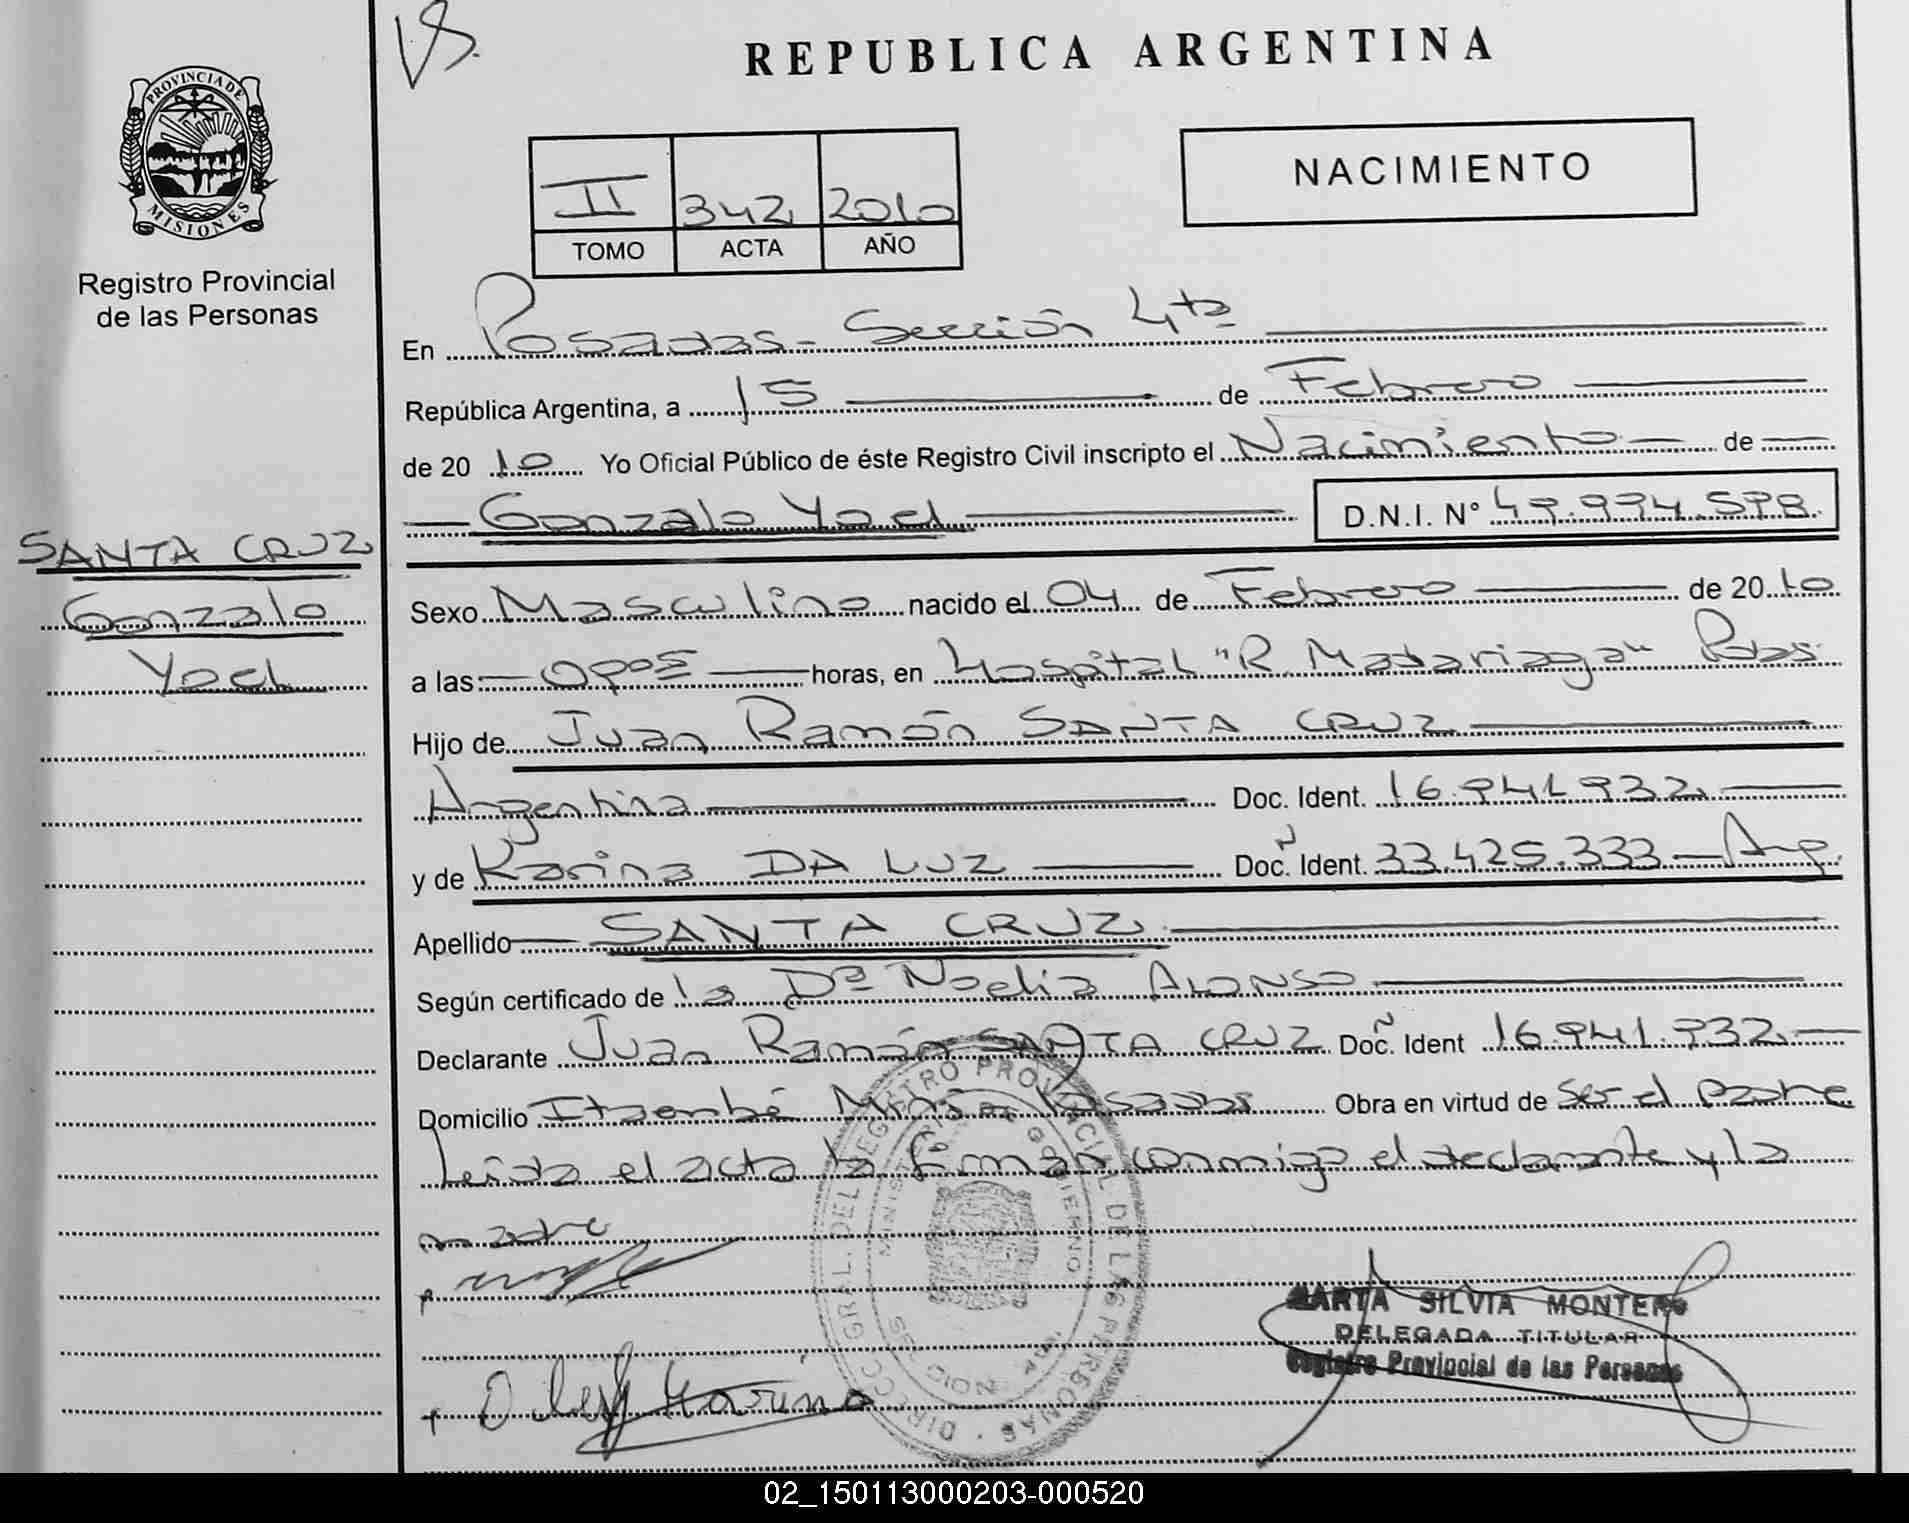 VS.
REPUBLICA ARGENTINA
PROVINCIA DE
MISIONES
Registro Provincial
de las Personas
NACIMIENTO
II 342 2010
TOMO ACTA AÑO
En Posadas - Sección 4ta
República Argentina, a 15 de Febrero
de 20 10 Yo Oficial Público de éste Registro Civil inscripto el Nacimiento de
Gonzalo Yoel D.N.I. N°
SANTA CRUZ
Gonzalo
Yoel
Sexo Masculino nacido el 04 de Febrero de 20 10
a las horas, en Hospital "R. Madariaga" Pdas.
Hijo de Juan Ramón SANTA CRUZ
Argentina Doc. Ident. 16.941.932
y de Karina DA LUZ Doc. Ident. 33.425.333 - Arg.
Apellido SANTA CRUZ
Según certificado de la Dra Noelia ALONSO
Declarante Juan Ramón SANTA CRUZ Doc. Ident 16.941.932
Domicilio Itaembé Posadas Obra en virtud de ser el padre
Leída el acta la firman conmigo el declarante y la
madre
DIRECC. GRAL. DEL REGISTRO PROVINCIAL DE LAS PERSONAS
MINISTERIO DE GOBIERNO
MARTA SILVIA MONTERO
DELEGADA TITULAR
Registro Provincial de las Personas
Karina
02_150113000203-000520